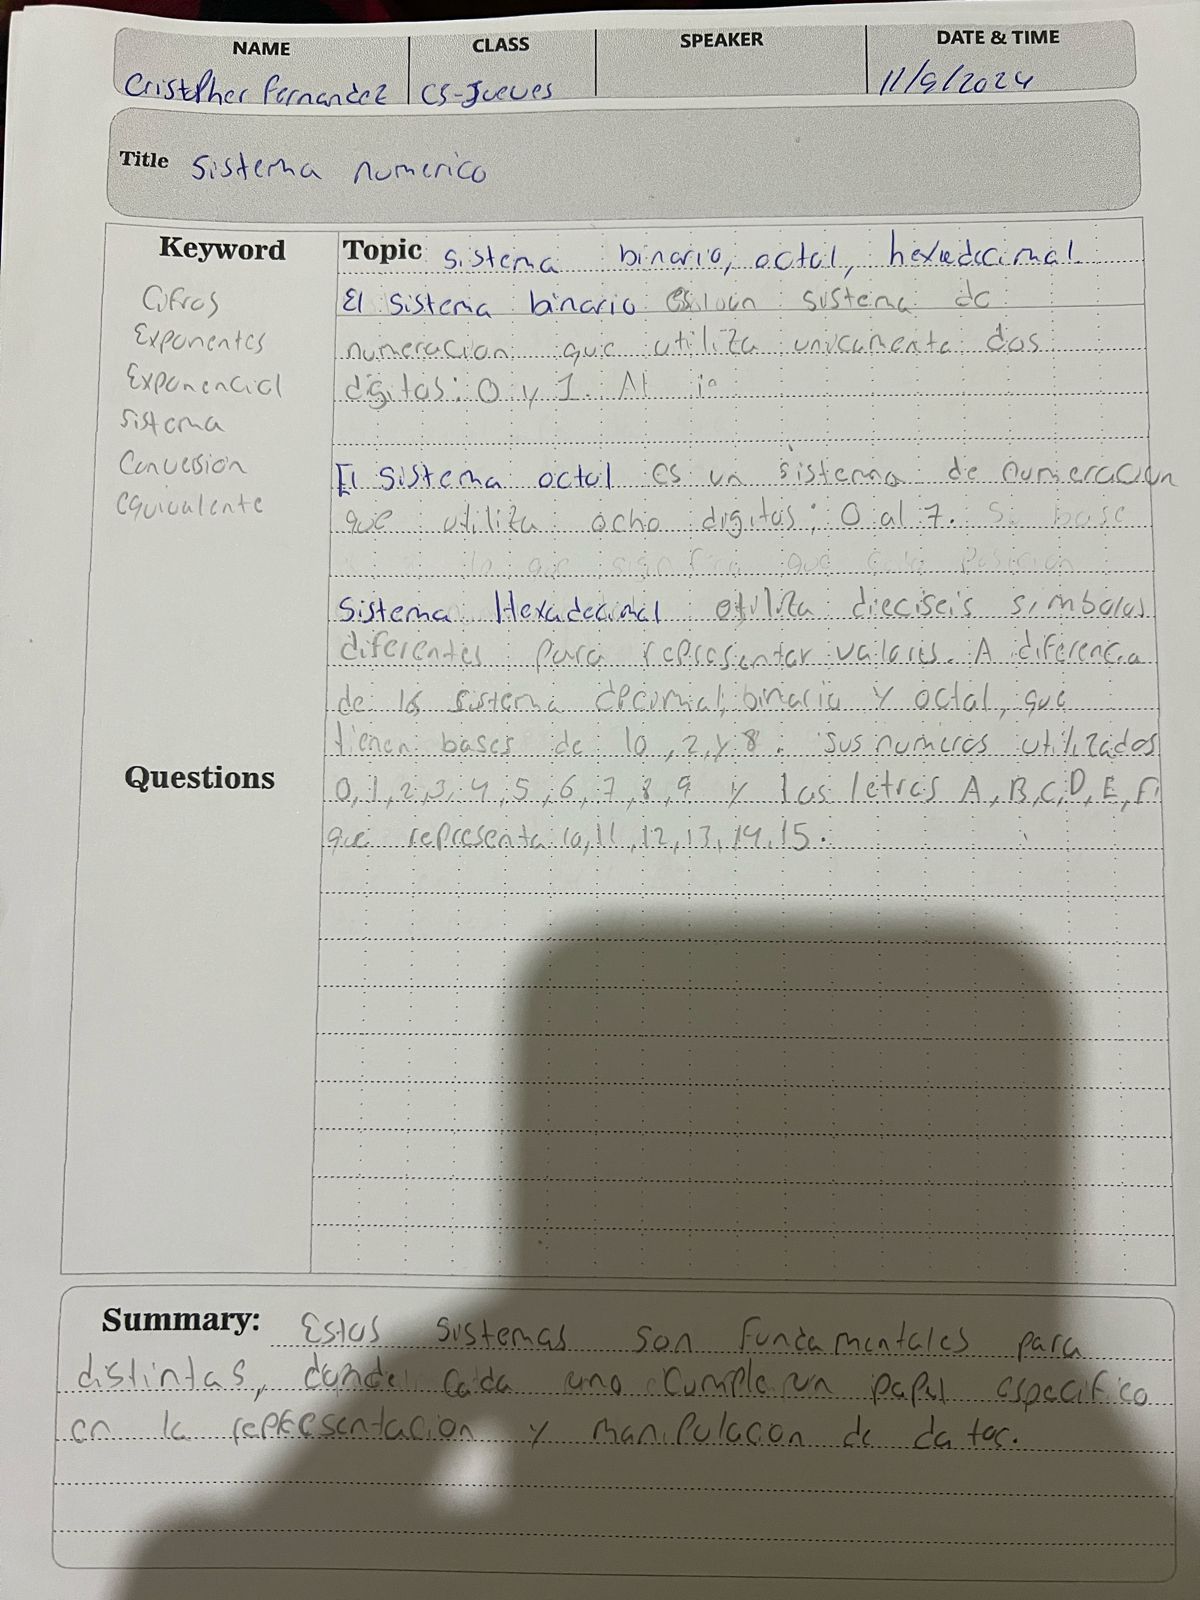 NAME CLASS SPEAKER DATE & TIME
Cristopher Fernandez CS-Jueves 11/9/2024
Title Sistema numerico
Keyword
Cifras
Exponentes
Exponencial
Sistema
Conversion
Equivalente
Questions
Topic sistema binario, octal, hexadecimal
El sistema binario es un sistema de
numeracion que utiliza unicamente dos
digitos: 0 y 1. Al
El sistema octal es un sistema de numeracion
que utiliza ocho digitos: 0 al 7. Su base
lo que significa que cada posicion
Sistema Hexadecimal utiliza dieciseis simbolos
diferentes para representar valores. A diferencia
de los sistema decimal, binario y octal, que
tienen bases de 10, 2, y 8. Sus numeros utilizados
0, 1, 2, 3, 4, 5, 6, 7, 8, 9 y las letras A, B, C, D, E, F
que representa 10, 11, 12, 13, 14, 15.
Summary: Estos sistemas son fundamentales para
distintas, donde cada uno cumple un papel especifico
en la representacion y manipulacion de datos.